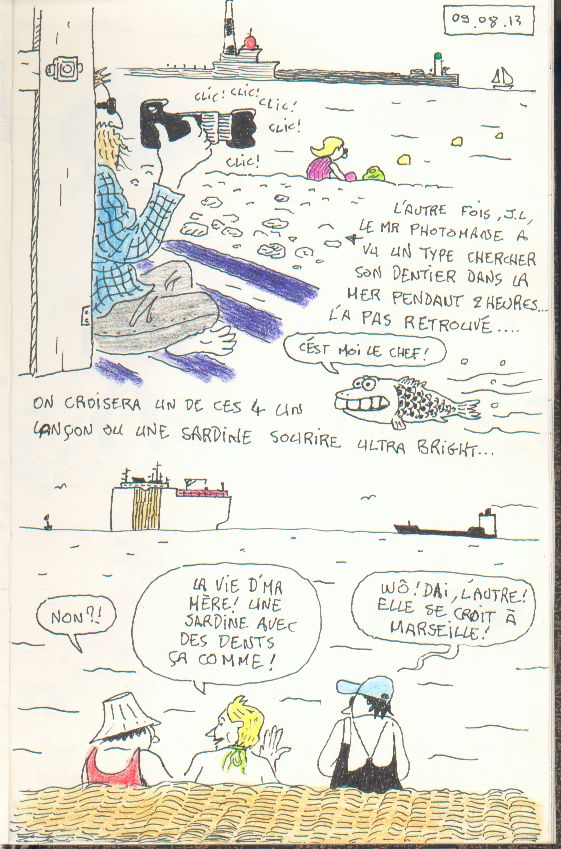 09.08.13
CLIC! CLIC!
CLIC!
CLIC!
CLIC!
L'AUTRE FOIS, J.L,
LE MR PHOTOMANE A
VU UN TYPE CHERCHER
SON DENTIER DANS LA
MER PENDANT 2 HEURES...
L'A PAS RETROUVÉ....
C'EST MOI LE CHEF!
ON CROISERA UN DE CES 4 UN
LANÇON OU UNE SARDINE SOURIRE ULTRA BRIGHT...
NON?!
LA VIE D'MA
MÈRE! UNE
SARDINE AVEC
DES DENTS
ÇA COMME!
WÔ! DAI, L'AUTRE!
ELLE SE CROIT À
MARSEILLE!